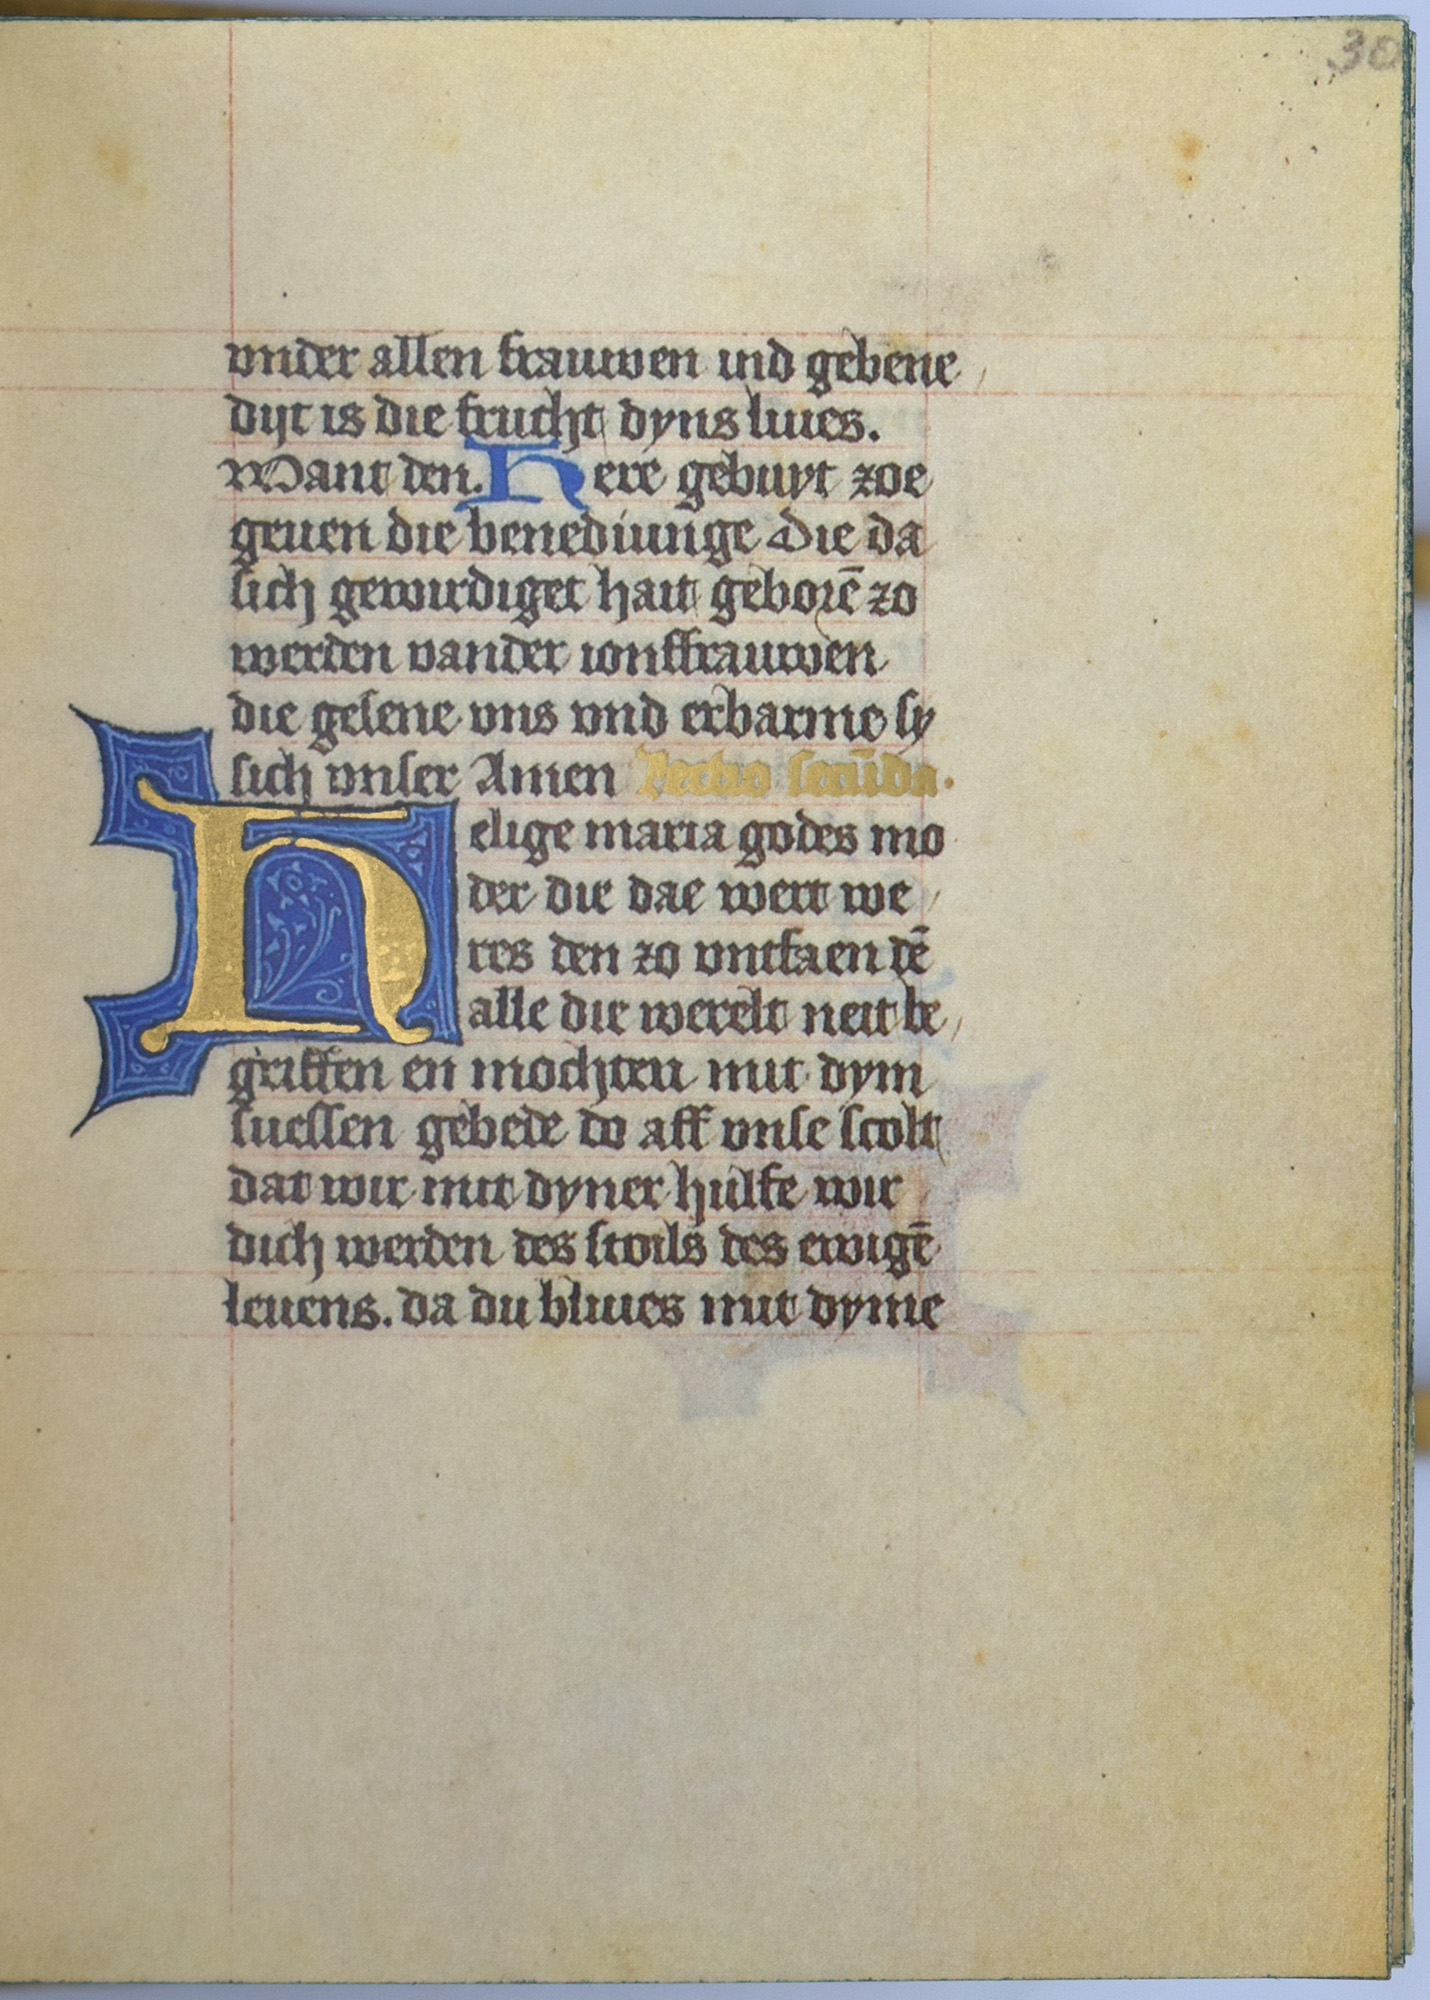 30
vnder allen frauwen ind gebene
dijt is die frucht dyns liues.
Want den. Here geburt zoe
geuen die benediunge Die da
sich gewirdiget hait geborē zo
werden vander ionffrauwen
die gesene vns vnd erbarme sy
sich vnser Amen Lectio secūda.
Helige maria godes mo
der die dae wert we
res den zo vntfaen dē
alle die werelt neit be
griffen en mochten mit dym
suessen gebede do aff vnse scolt
dat wir mit dyner hulfe wir
dich werden des stoils des ewigē
leuens. da du bliues mit dyme